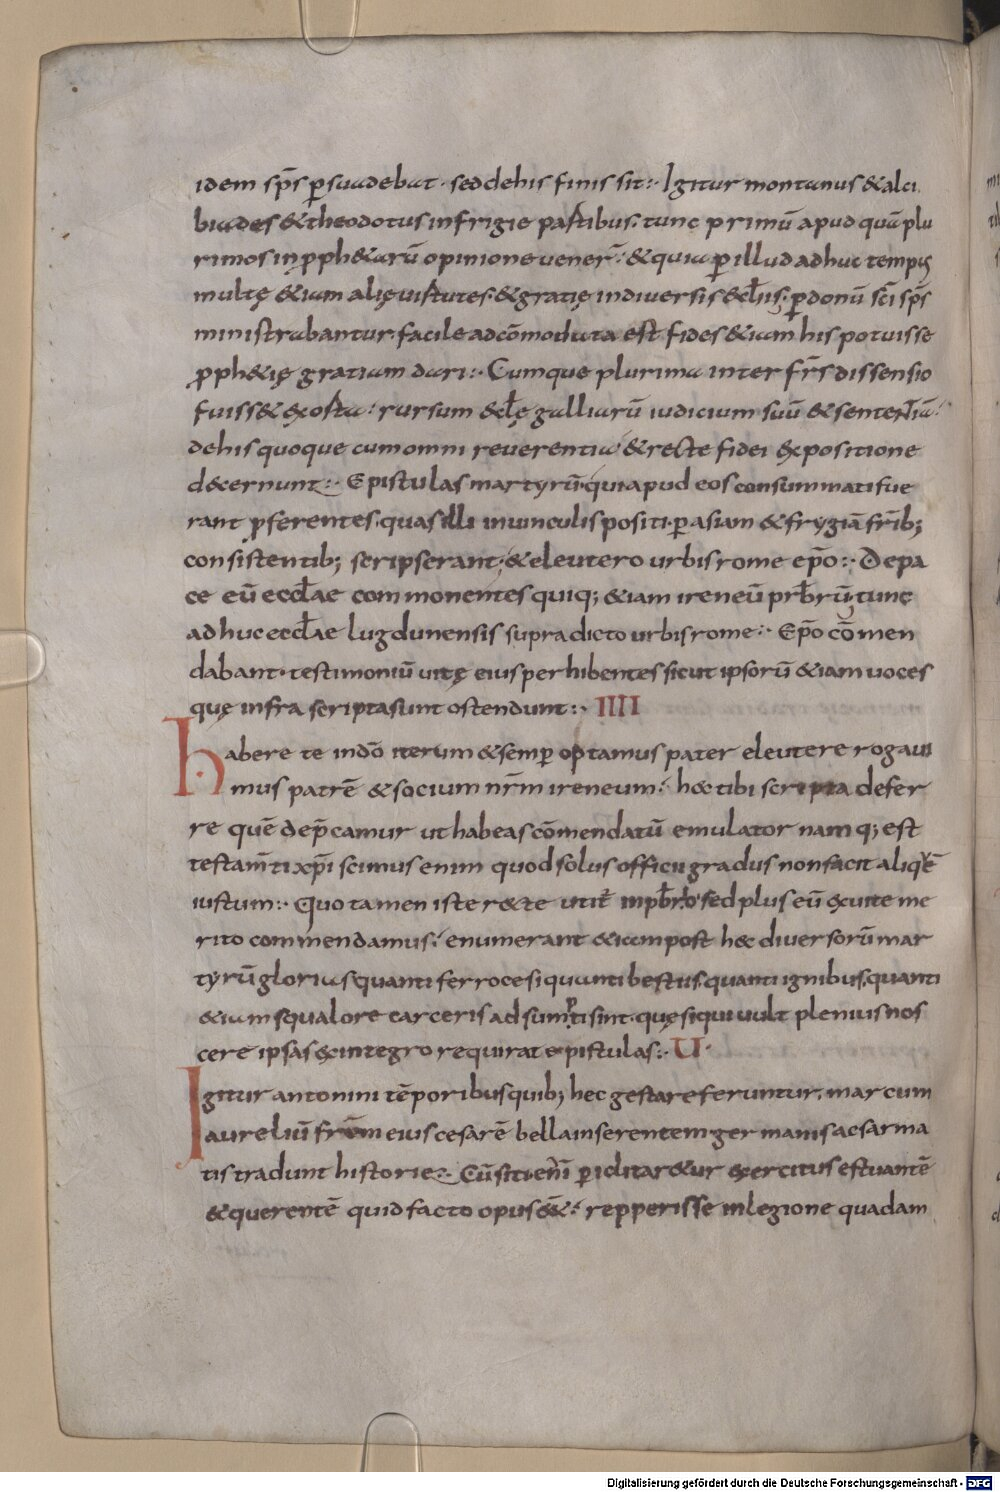 idem sp̄s ꝑsuadebat · sed de his finis sit :· Igitur montanus & alci
biades & theodotus in frigie partibus. tunc primū apud quā plu
rimos in ꝓph&arū opinione vener̄ : & quia ꝑ illud adhuc tempꝰ
multę &iam alię virtutes & gratię in diversis eccl̄iis. ꝑ donū sc̄i sp̄s
ministrabantur. facile adcōmodata est fides &iam his potuisse
ꝓph&ię gratiam dari :· Cumque plurima inter fr̄s dissensio
fuiss& exorta : rursum eccl̄ę galliarū iudicium suū & sententiā :
de his quoque cum omni reverentia & recte fidei expositione
decernunt :· Epistulas martyrū qui apud eos consummati fue
rant ꝓferentes. quas illi in vinculis positi. ꝑ asiam & frygiā fr̄ib;
consistentib; scripserant. & eleutero urbis rome ep̄o :· De pa
ce eū eccl̄ae commonentes quiq; &iam ireneū prb̄rū tunc
adhuc eccl̄ae lugdunensis supra dicto urbis rome :· Ep̄o cōmen
dabant · testimoniū vitę eius perhibentes sicut ipsorū &iam voces
quę infra scripta sunt ostendunt :· IIII
habere te in dō iterum & semꝑ optamus pater eleutere rogavi
mus patrē & socium nr̄m ireneum : hęc tibi scripta defer
re quē dep̄camur ut habeas cōmendatū emulator namq; est
testam̄ti xp̄i scimus enim quod solus officii gradus non facit aliqē
iustum :· Quo tamen iste recte utit̄ in pb̄rio sed plus eū ex vite me
rito commendamus : enumerant &iam post hęc diversorū mar
tyrū glorias quanti ferro cesi quanti bestiis. quanti ignibus. quanti
&iam squalore carceris adsumpti sint. quę siqui vult plenius nos
cere ipsas ex integro requirat epistulas :· U ·
Igitur antonini tēporibus quib; hec gesta referuntur. marcum
aureliū frēm eius cesarē bella inserentem germanis ac sarma
tis tradunt historie :· Cū siti eni ꝑiclitar&ur exercitus estuantē
& querentē quid facto opus e&: repperisse in legione quadam
Digitalisierung gefördert durch die Deutsche Forschungsgemeinschaft - DFG